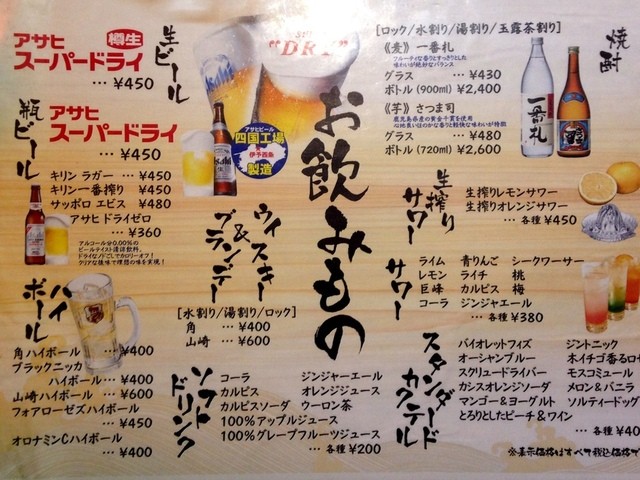 お飲みもの
生ビール
アサヒ 樽生
スーパードライ
… ¥450
瓶ビール
アサヒ
スーパードライ
… ¥450
キリン ラガー … ¥450
キリン一番搾り ¥450
サッポロ エビス ¥480
アサヒ ドライゼロ
… ¥360
アルコール分0.00%の
ビールテイスト清涼飲料。
ドライなノドごしでカロリーオフ!
クリアな後味で理想の味を実現!
ハイボール
角ハイボール …¥400
ブラックニッカ
ハイボール …¥400
山崎ハイボール …¥600
フォアローゼズハイボール
… ¥450
オロナミンCハイボール
… ¥400
"DRY"
アサヒビール
四国工場
伊予西条
製造
ウイスキー&ブランデー
[水割り/湯割り/ロック]
角 … ¥400
山崎 … ¥600
ソフトドリンク
コーラ ジンジャーエール
カルピス オレンジジュース
カルピスソーダ ウーロン茶
100%アップルジュース
100%グレープフルーツジュース
… 各種 ¥200
焼酎
[ロック/水割り/湯割り/玉露茶割り]
《麦》一番札
フルーティな香りとすっきりとした
味わいが絶妙なバランス
グラス … ¥430
ボトル(900ml) ¥2,400
《芋》さつま司
鹿児島県産の黄金千貫を使用
心地良いほのかな香りと軽快な味わいが特徴
グラス … ¥480
ボトル(720ml) ¥2,600
一番札
生搾りサワー
生搾りレモンサワー
生搾りオレンジサワー
… 各種 ¥450
サワー
ライム 青りんご シークワーサー
レモン ライチ 桃
巨峰 カルピス 梅
コーラ ジンジャエール
… 各種 ¥380
スタンダードカクテル
バイオレットフィズ ジントニック
オーシャンブルー ホイチゴ香るロ
スクリュードライバー モスコミュール
カシスオレンジソーダ メロン&バニラ
マンゴー&ヨーグルト ソルティードッグ
とろりとしたピーチ&ワイン
… 各種 ¥40
※表示価格はすべて税込価格で